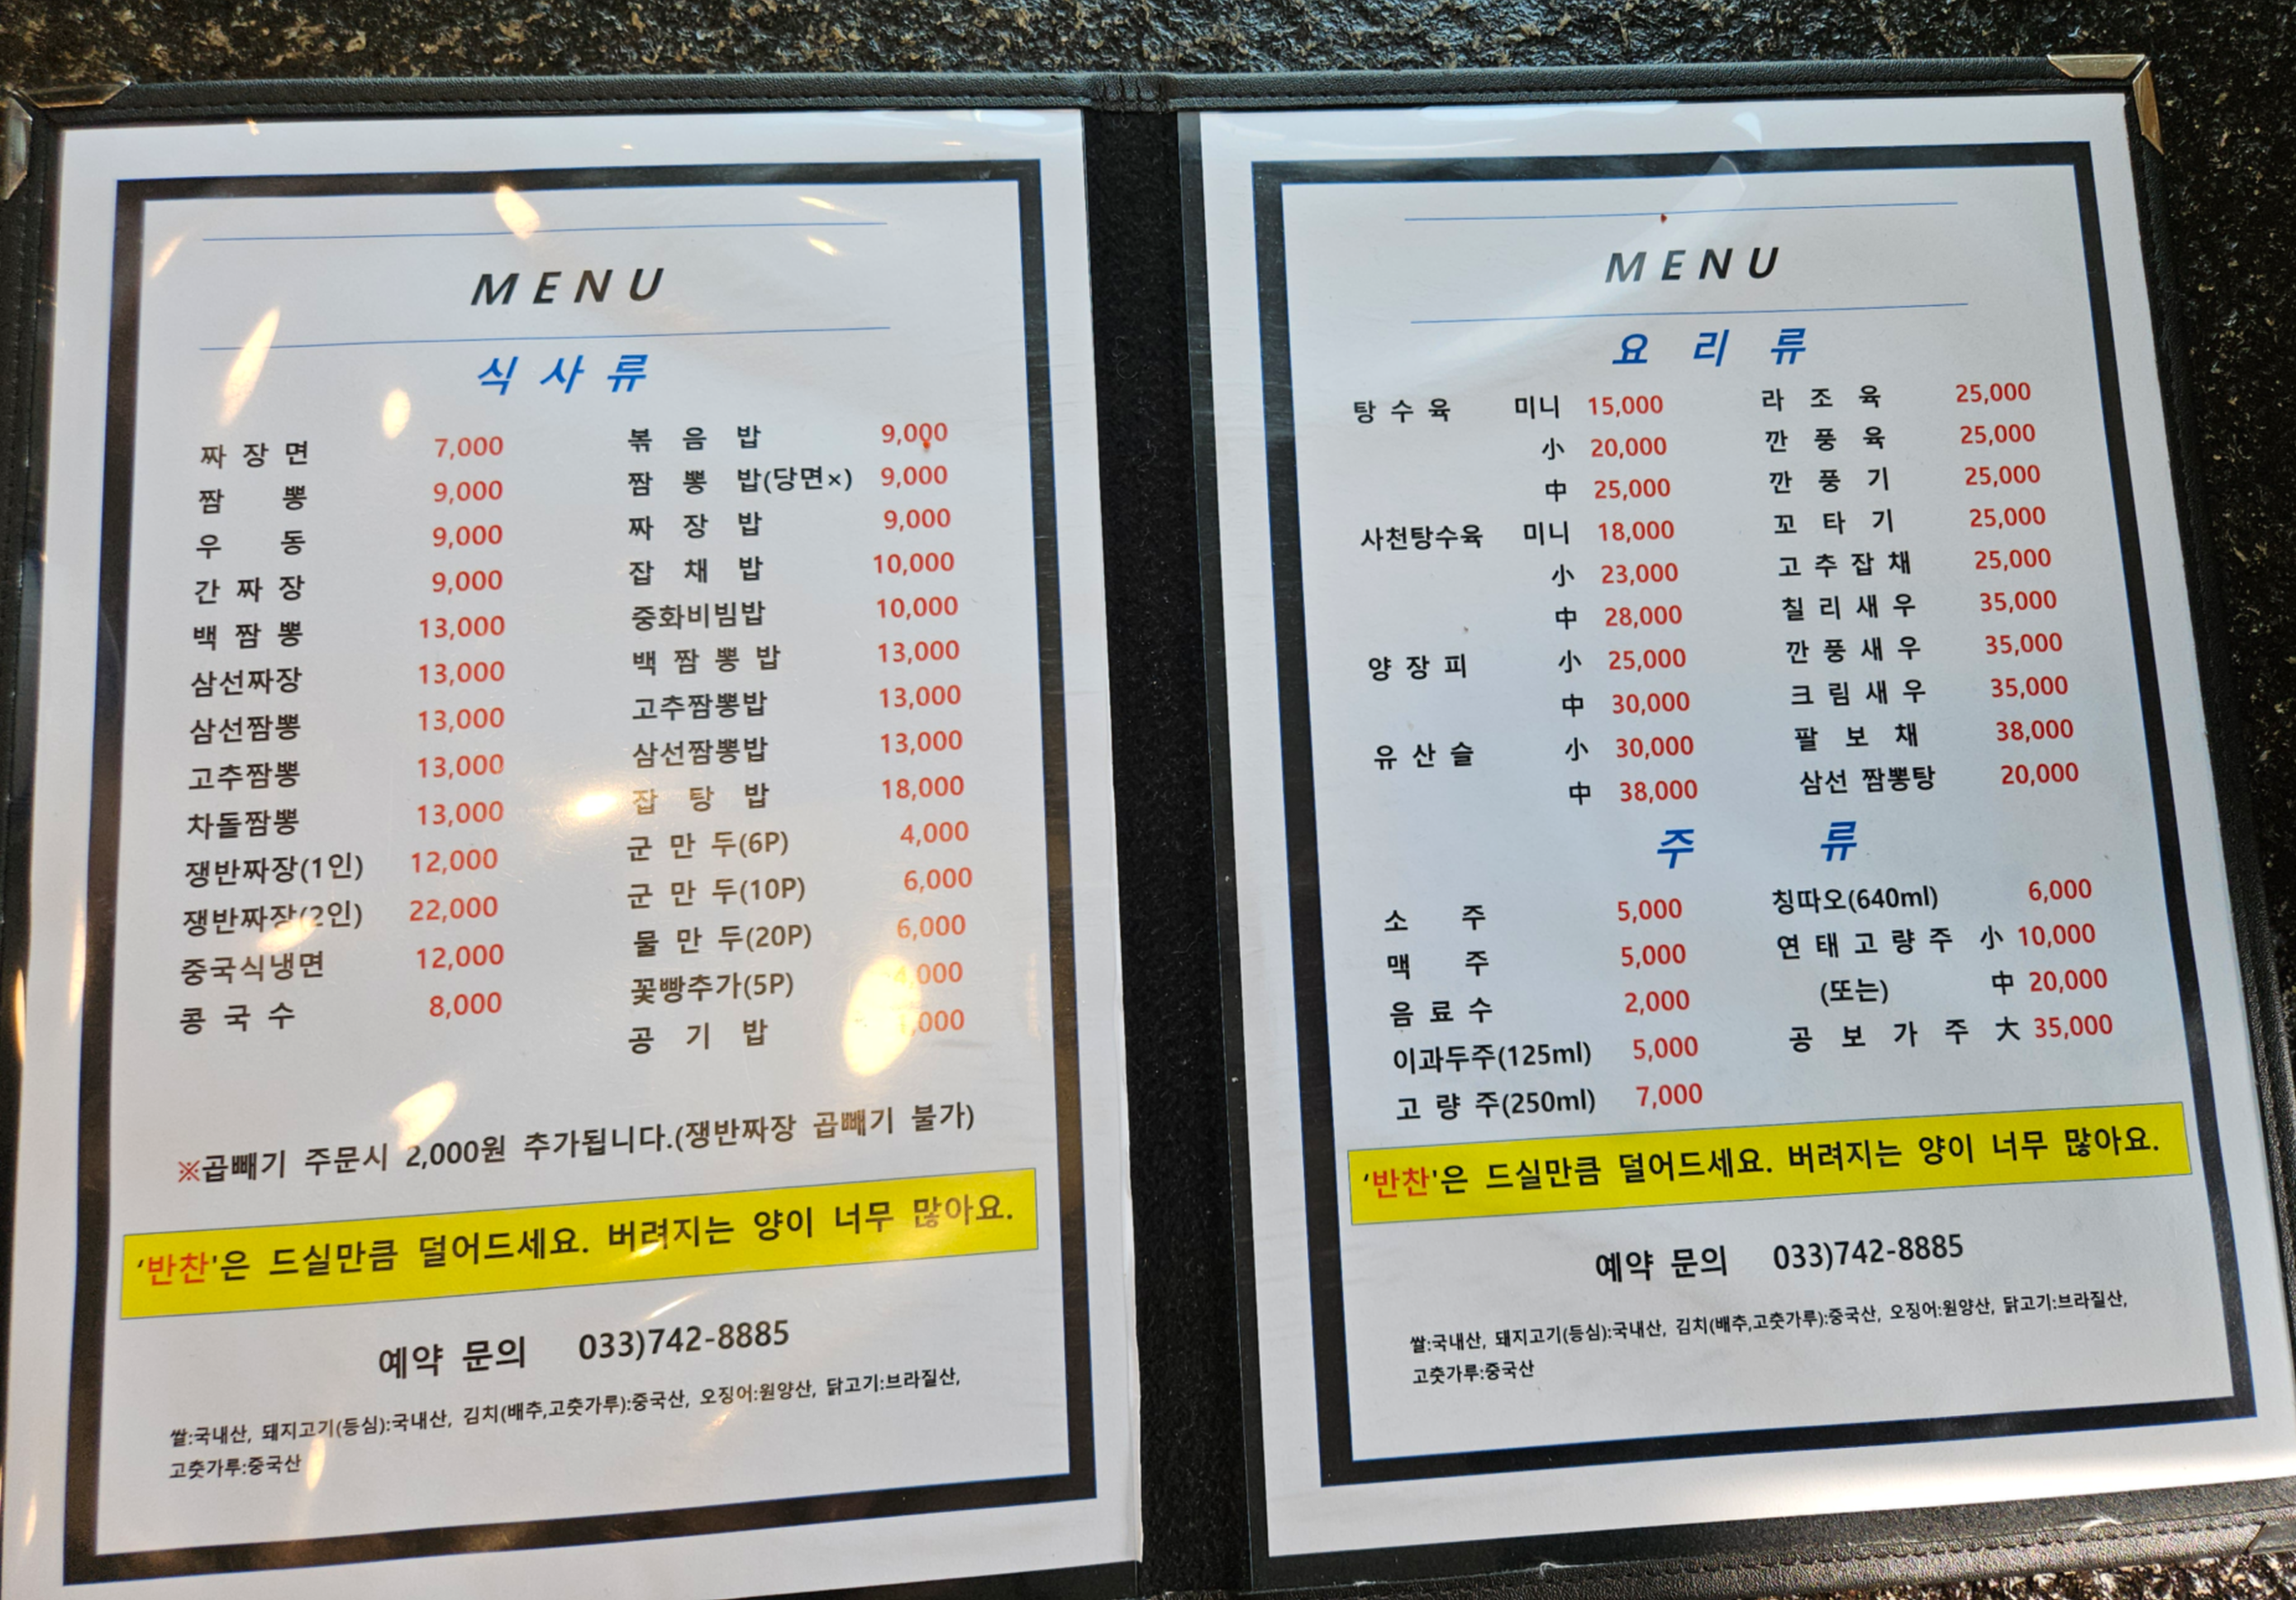 MENU
식사류
짜장면 7,000
짬뽕 9,000
우동 9,000
간짜장 9,000
백짬뽕 13,000
삼선짜장 13,000
삼선짬뽕 13,000
고추짬뽕 13,000
차돌짬뽕 13,000
쟁반짜장(1인) 12,000
쟁반짜장(2인) 22,000
중국식냉면 12,000
콩국수 8,000
볶음밥 9,000
짬뽕밥(당면×) 9,000
짜장밥 9,000
잡채밥 10,000
중화비빔밥 10,000
백짬뽕밥 13,000
고추짬뽕밥 13,000
삼선짬뽕밥 13,000
잡탕밥 18,000
군만두(6P) 4,000
군만두(10P) 6,000
물만두(20P) 6,000
꽃빵추가(5P) 4,000
공기밥
※곱빼기 주문시 2,000원 추가됩니다.(쟁반짜장 곱빼기 불가)
'반찬'은 드실만큼 덜어드세요. 버려지는 양이 너무 많아요.
예약 문의 033)742-8885
쌀:국내산, 돼지고기(등심):국내산, 김치(배추,고춧가루):중국산, 오징어:원양산, 닭고기:브라질산,
고춧가루:중국산
MENU
요리류
탕수육 미니 15,000
小 20,000
中 25,000
사천탕수육 미니 18,000
小 23,000
中 28,000
양장피 小 25,000
中 30,000
유산슬 小 30,000
中 38,000
라조육 25,000
깐풍육 25,000
깐풍기 25,000
꼬타기 25,000
고추잡채 25,000
칠리새우 35,000
깐풍새우 35,000
크림새우 35,000
팔보채 38,000
삼선 짬뽕탕 20,000
주류
소주 5,000
맥주 5,000
음료수 2,000
이과두주(125ml) 5,000
고량주(250ml) 7,000
칭따오(640ml) 6,000
연태고량주 小 10,000
(또는) 中 20,000
공보가주 大 35,000
'반찬'은 드실만큼 덜어드세요. 버려지는 양이 너무 많아요.
예약 문의 033)742-8885
쌀:국내산, 돼지고기(등심):국내산, 김치(배추,고춧가루):중국산, 오징어:원양산, 닭고기:브라질산,
고춧가루:중국산